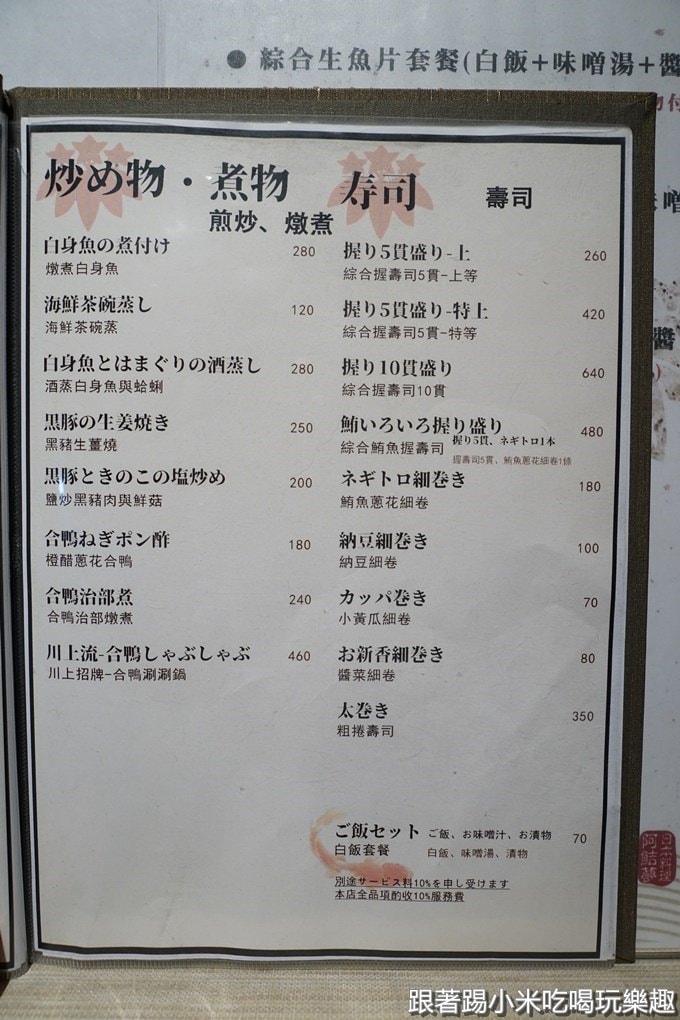 ● 綜合生魚片套餐(白飯+味噌湯+醬
炒め物・煮物
煎炒、燉煮
白身魚の煮付け 280
燉煮白身魚
海鮮茶碗蒸し 120
海鮮茶碗蒸
白身魚とはまぐりの酒蒸し 280
酒蒸白身魚與蛤蜊
黒豚の生姜焼き 250
黑豬生薑燒
黒豚ときのこの塩炒め 200
鹽炒黑豬肉與鮮菇
合鴨ねぎポン酢 180
橙醋蔥花合鴨
合鴨治部煮 240
合鴨治部燉煮
川上流-合鴨しゃぶしゃぶ 460
川上招牌-合鴨涮涮鍋
寿司 壽司
握り5貫盛り-上 260
綜合握壽司5貫-上等
握り5貫盛り-特上 420
綜合握壽司5貫-特等
握り10貫盛り 640
綜合握壽司10貫
鮪いろいろ握り盛り 480
握り5貫、ネギトロ1本
綜合鮪魚握壽司
握壽司5貫、鮪魚蔥花細卷1條
ネギトロ細巻き 180
鮪魚蔥花細卷
納豆細巻き 100
納豆細卷
カッパ巻き 70
小黃瓜細卷
お新香細巻き 80
醬菜細卷
太巻き 350
粗捲壽司
ご飯セット ご飯、お味噌汁、お漬物 70
白飯套餐 白飯、味噌湯、漬物
別途サービス料10%を申し受けます
本店全品項酌收10%服務費
醬
日本料理
跟著踢小米吃喝玩樂趣